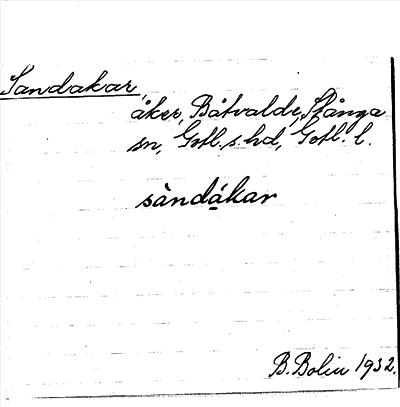 Sandakar,
åker, Båtvalde, Stånga
sn, Gotl. s. hd, Gotl. l.
sàndákar
B. Bolin 1932.